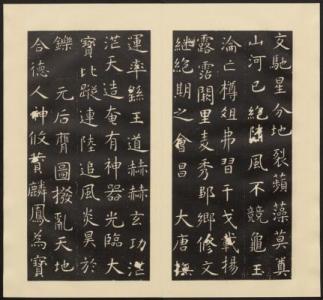 文馳星分地裂蘋藻莫奠
山河已絕隨風不競龜玉
淪亡樽俎弗習干戈載揚
露霑闕里麦秀鄒鄉修文
継絕期之會昌 大唐撫
運率繇王道赫赫玄功茫
茫天造奄有神器光臨大
寶比蹤連陸追風炎昊於
鑠 元后膺圖撥亂天地
合德人神攸贊麟鳳為寶